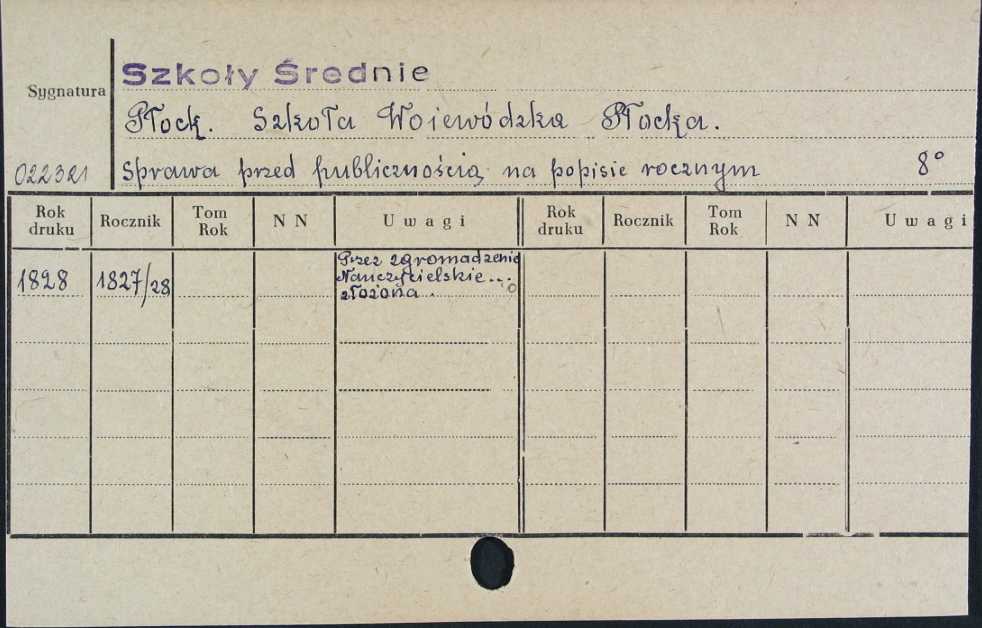 Szkoły Średnie
Sygnatura
Płock. Szkoła Wojewódzka Płocka.
022321 Sprawa przed publicznością na popisie rocznym 8°
Rok druku Rocznik Tom Rok N N Uwagi Rok druku Rocznik Tom Rok N N Uwagi
1828 1827/28 Przez zgromadzenie
Nauczycielskie...
złożona.